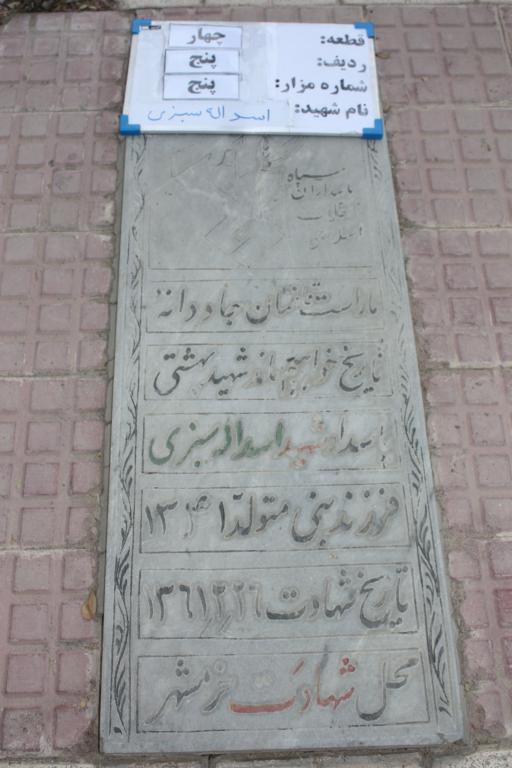 قطعه: چهار
ردیف: پنج
شماره مزار: پنج
نام شهید: اسداله سبزی
سپاه
پاسداران
انقلاب
اسلامی
ما راست قامتان جاودانه
تاریخ خواهیم ماند شهید بهشتی
پاسدار شهید اسداله سبزی
فرزند بنی متولد ۱۳۴۱
تاریخ شهادت ۱۳۶۱/۲/۲۶
محل شهادت خرمشهر